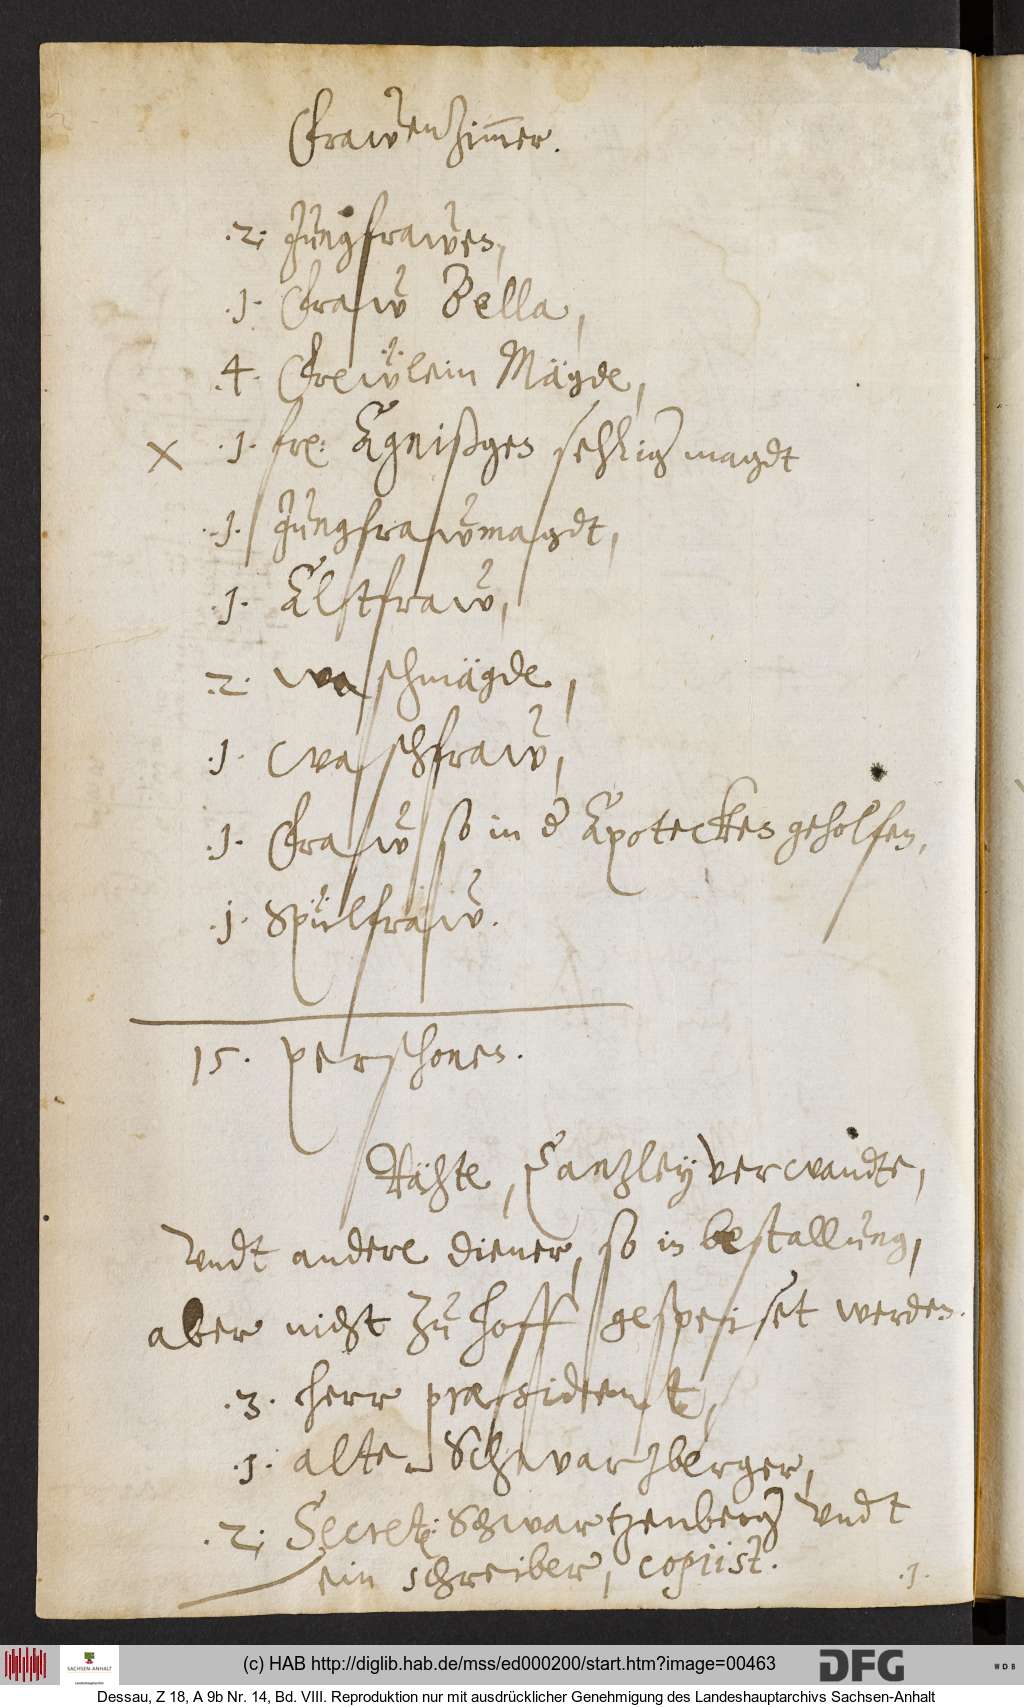 Frawenzim̅er.
.2. Jungfrawen,
.1. Fraw Bella,
.4. Frewlein Mägde,
.1. frl: Ägnißges sehlig magdt
.1. Jungfrawmagdt,
.1. fraw,
.2. waschmägde,
.1. waschfraw,
.1. Fraw so in d Apotecken geholfen,
.1. Spülfraw.
15. personen.
Rähte, Cantzleyverwandte,
vndt andere diener, so in bestallung,
aber nicht zu hoff gespeiset werden.
.3. herr præsident,
.1. alte Schwartzberger,
.2. Secret: Schwartzenberg vndt
ein schreiber, copiist.
.1.
(c) HAB http://diglib.hab.de/mss/ed000200/start.htm?image=00463
SACHSEN-ANHALT
DFG
WDB
Dessau, Z 18, A 9b Nr. 14, Bd. VIII. Reproduktion nur mit ausdrücklicher Genehmigung des Landeshauptarchivs Sachsen-Anhalt